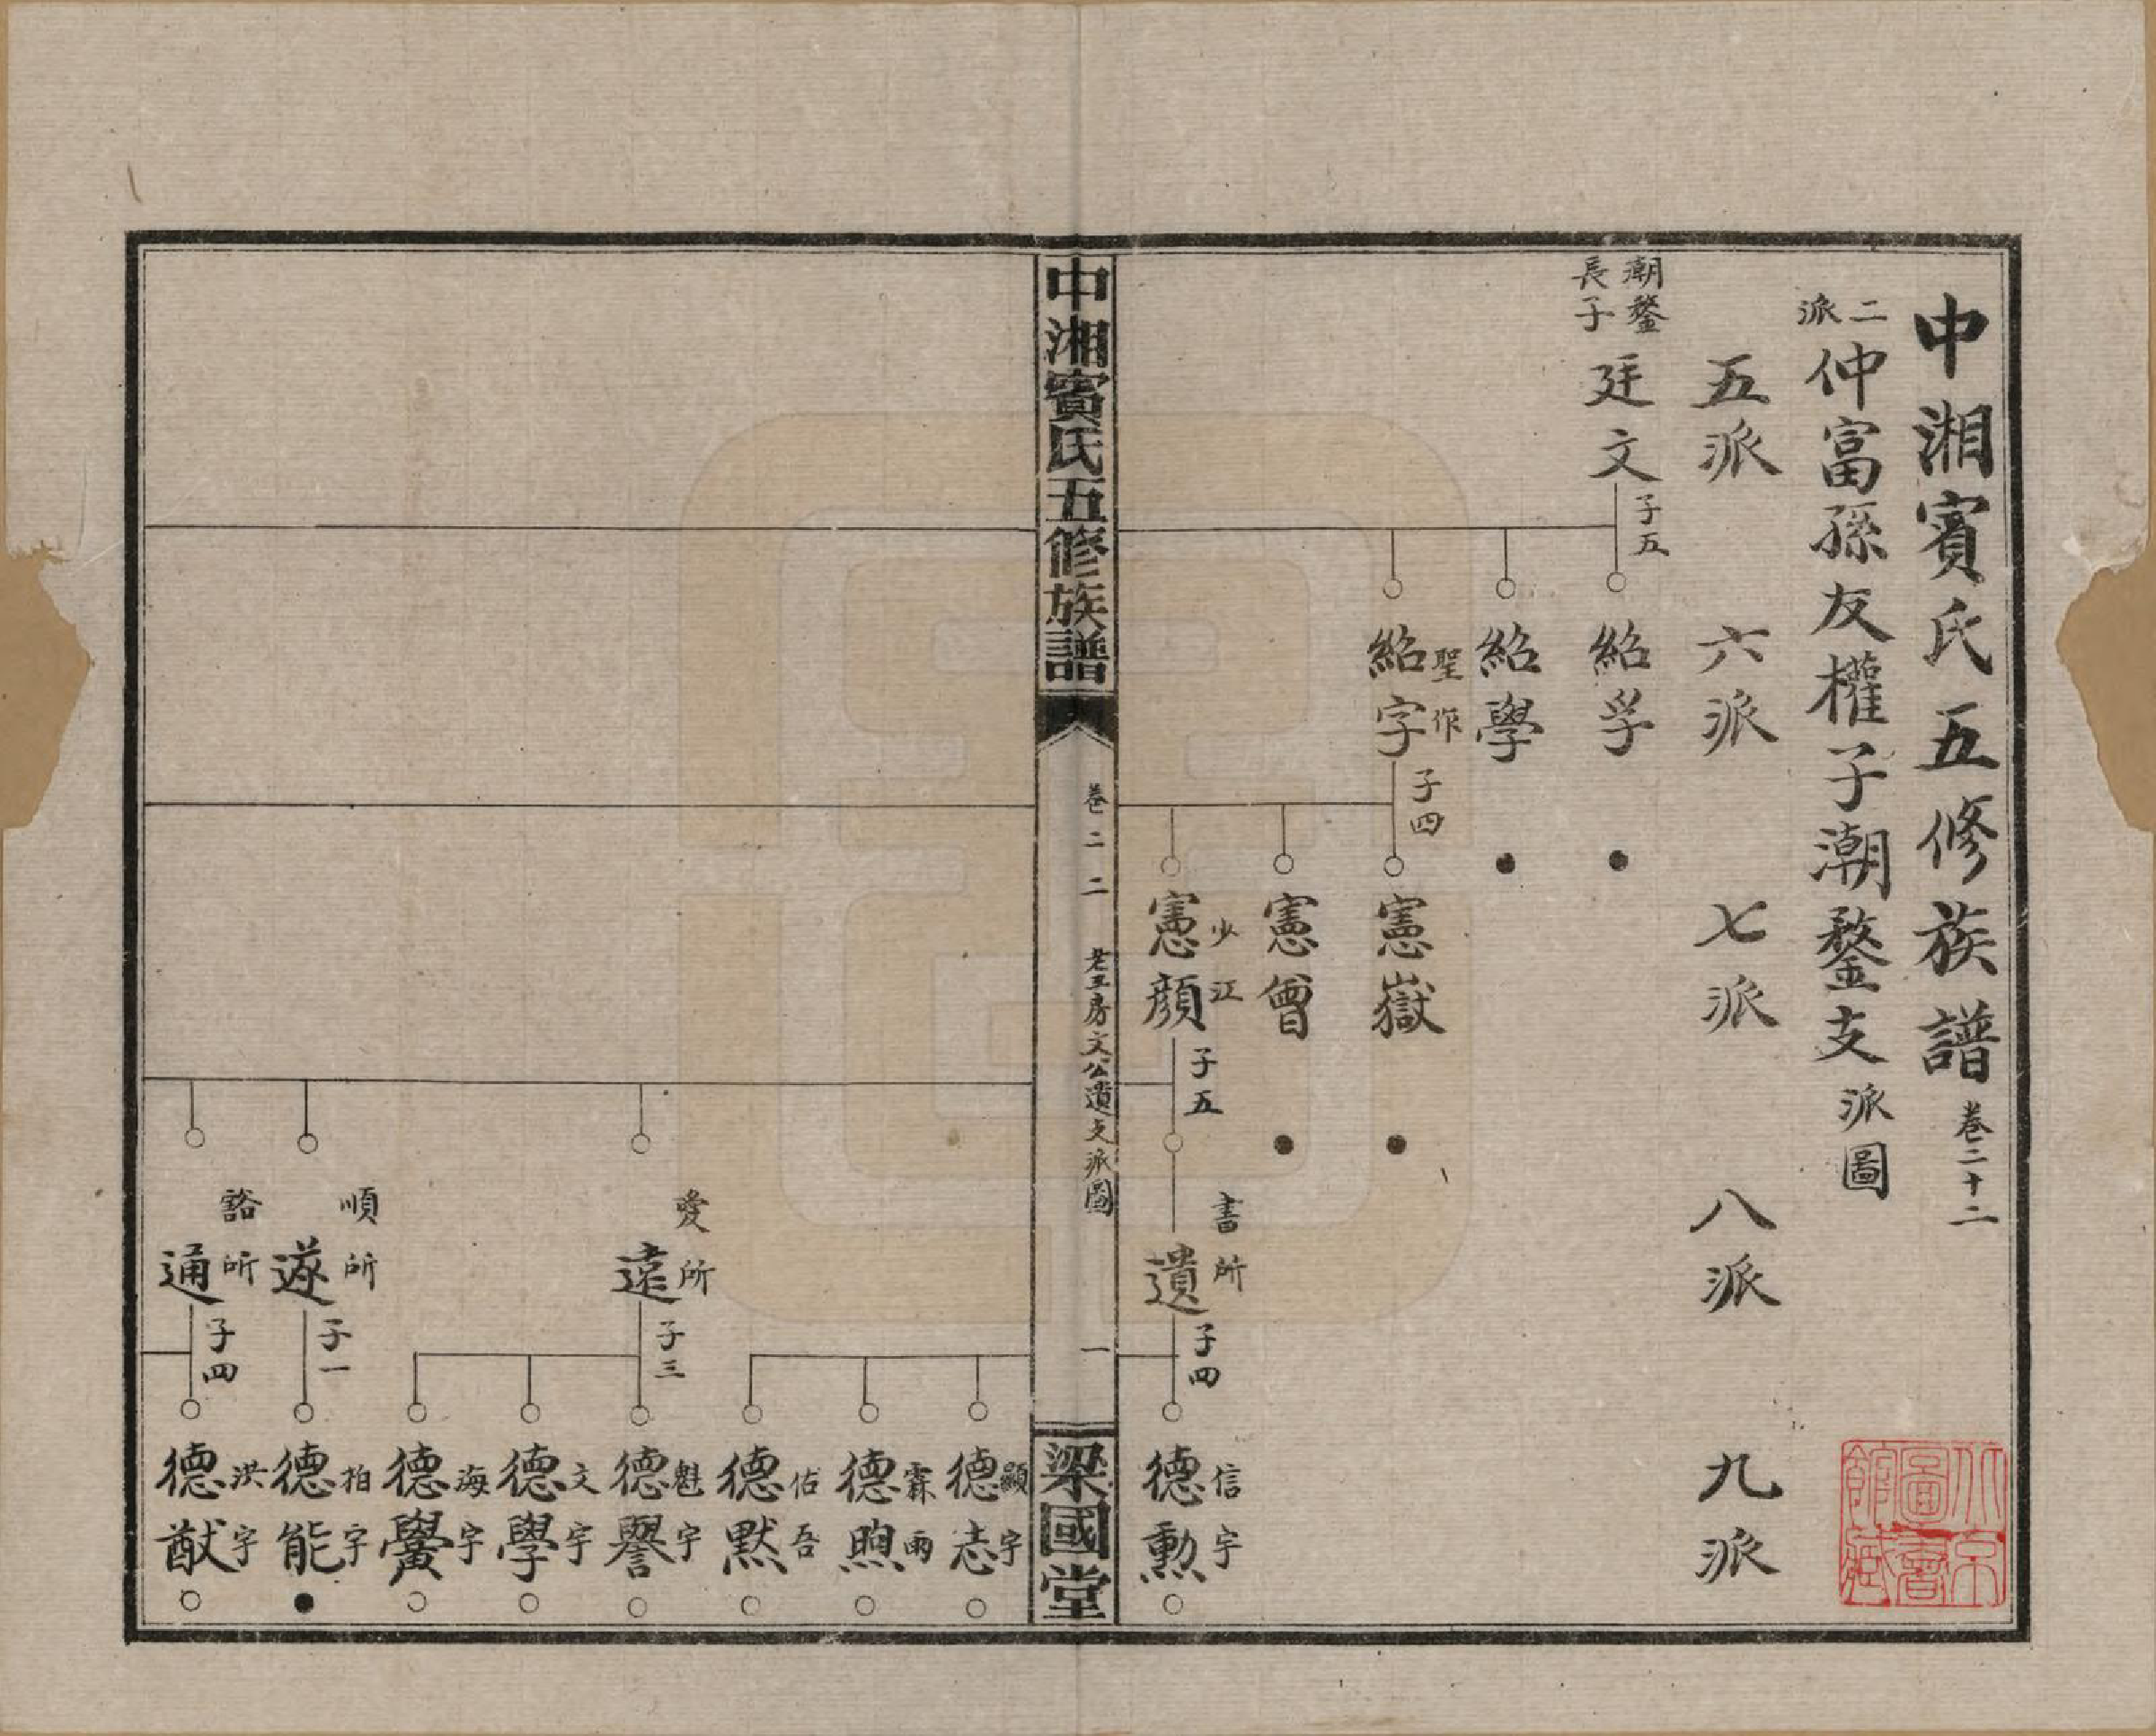 中湘賓氏五修族譜 卷二十二
二派 仲富孫友權子潮鍪支派圖
五派 六派 七派 八派 九派
潮鍪長子 廷文 子五
紹孚
紹學
聖作 紹字 子四
憲嶽
憲曾
少江 憲顏 子五
書所 遺 子四
信宇 德勳
中湘賓氏五修族譜
卷二二
老五房文公遺支派圖
一
梁國堂
顯宇 德志
霖雨 德煦
佑吾 德默
愛所 遠 子三
魁宇 德譽
文宇 德學
海宇 德黌
順所 遂 子一
柏宇 德能
豁所 通 子四
洪宇 德猷
北京圖書館藏